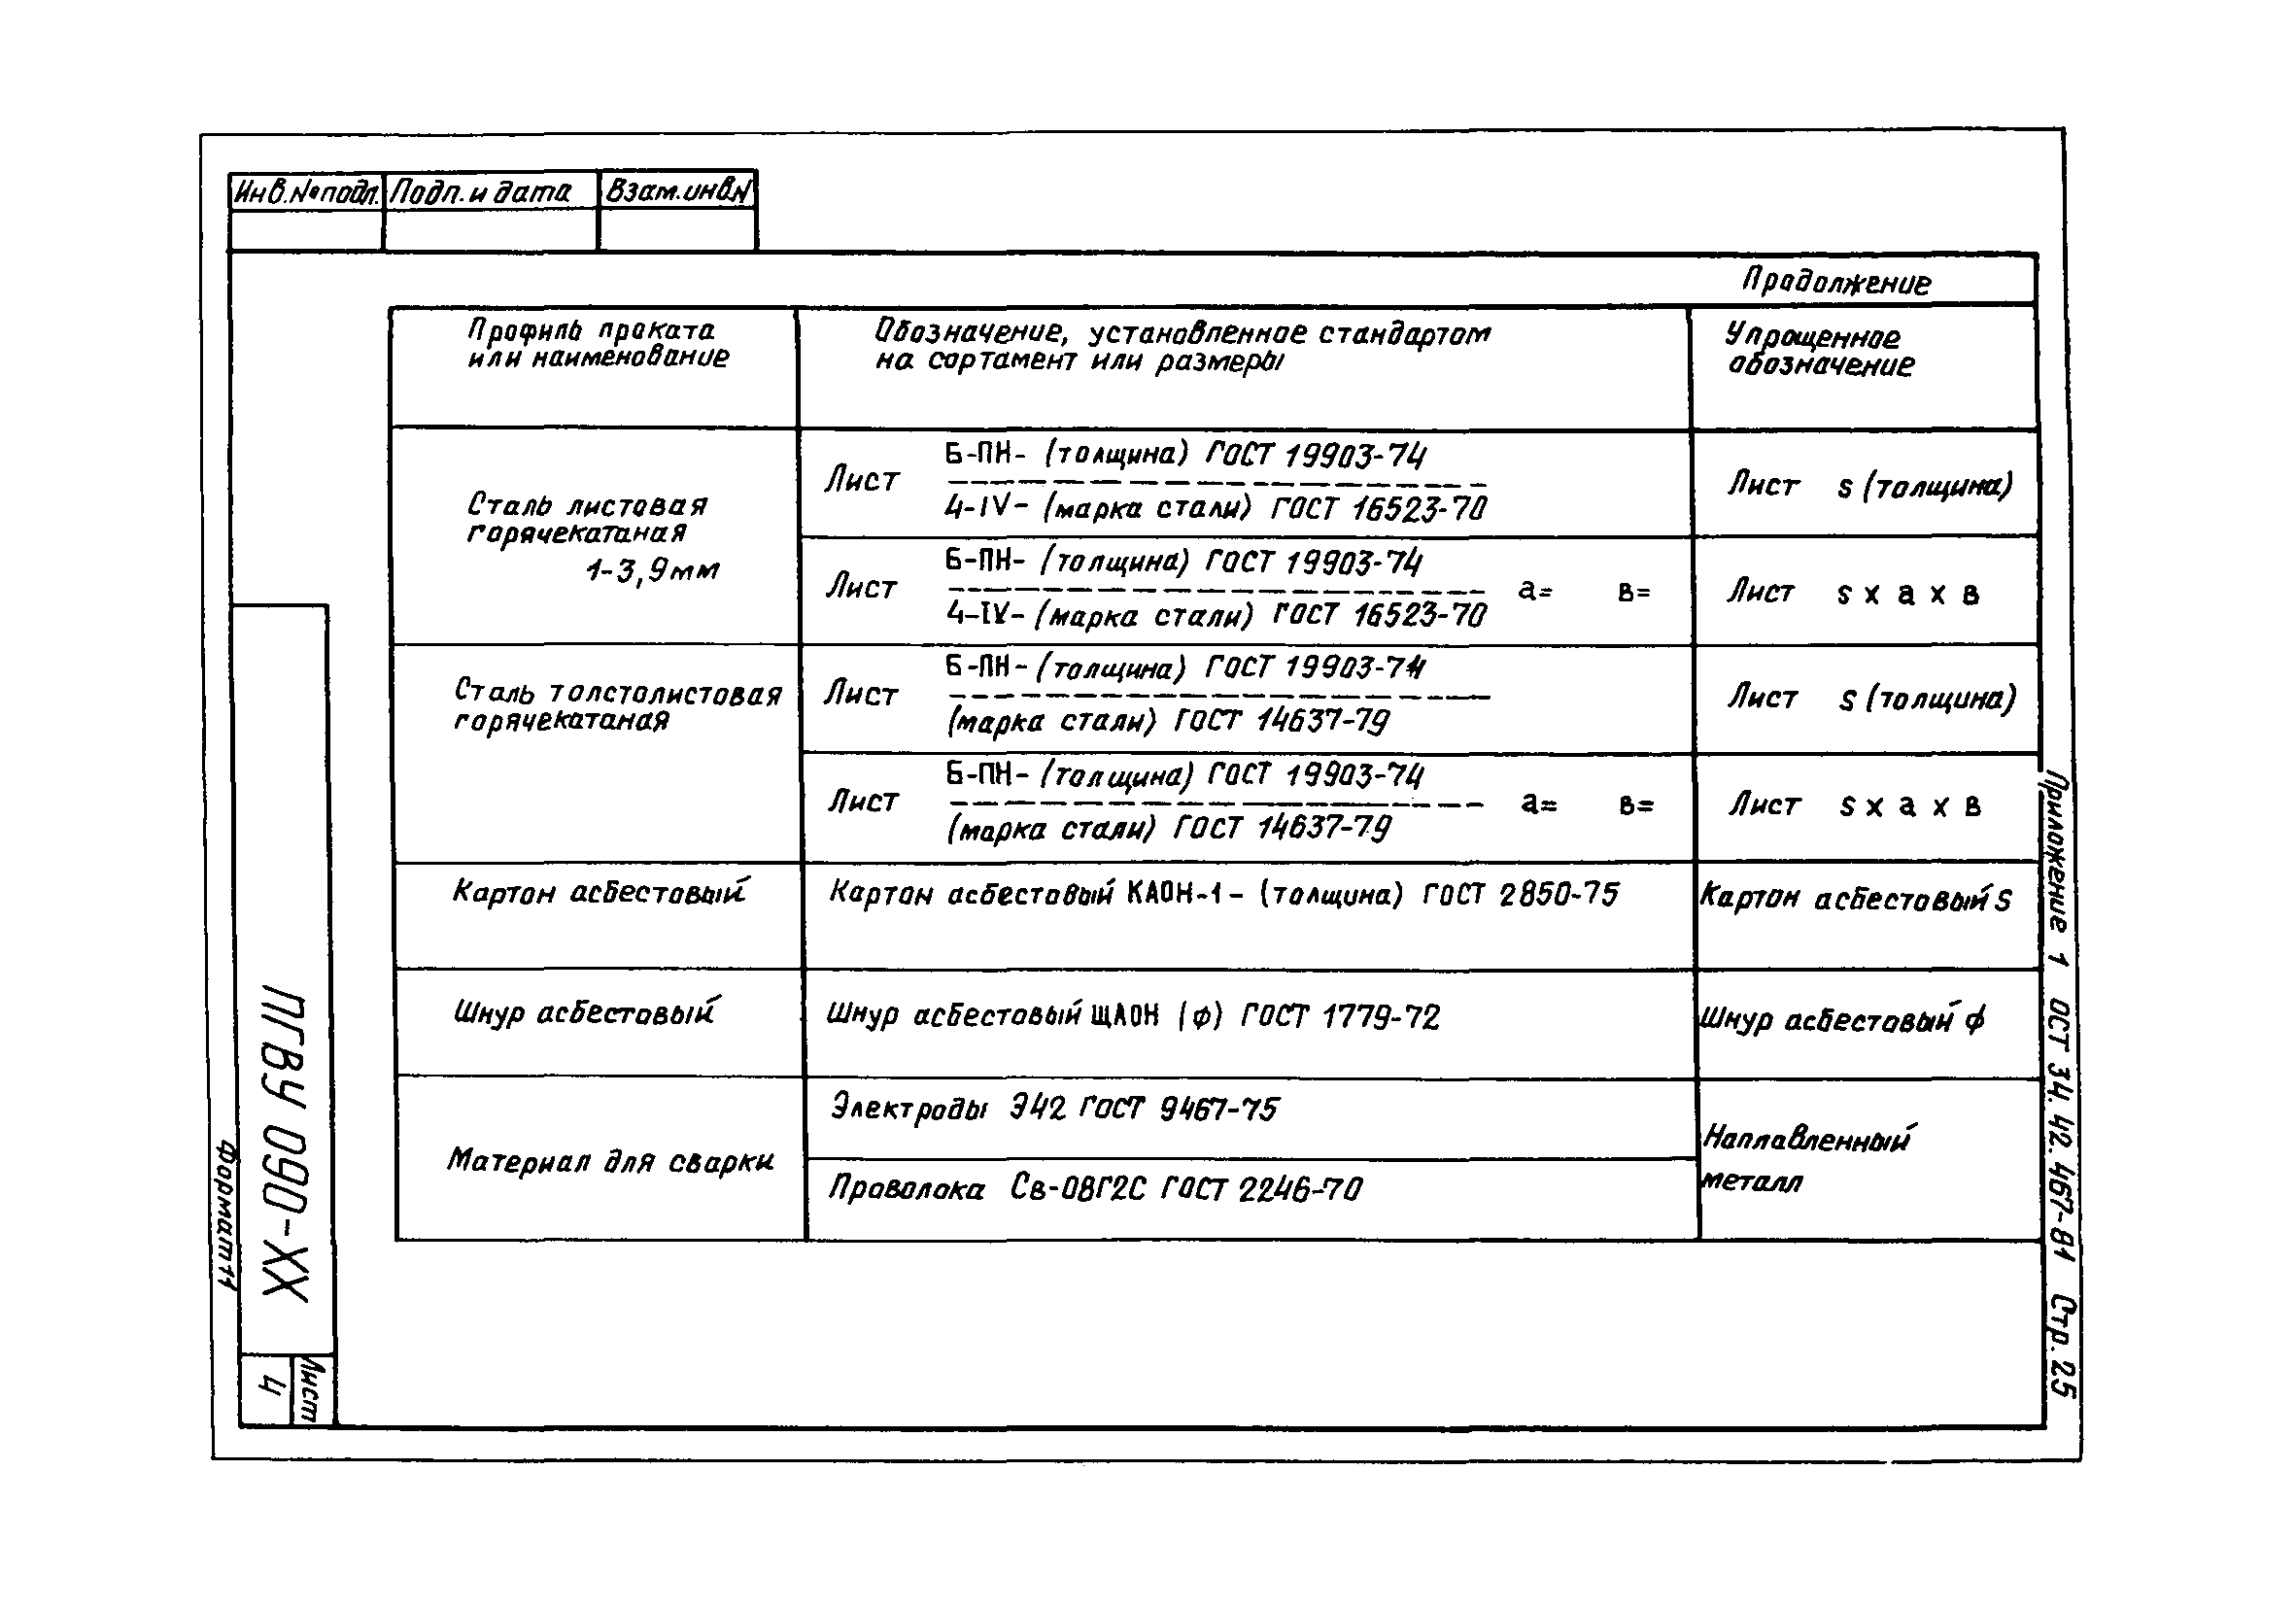 Инв.№подл. Подп.и дата Взам.инв.N
Продолжение
Профиль проката
или наименование
Обозначение, установленное стандартом
на сортамент или размеры
Упрощенное
обозначение
Сталь листовая
горячекатаная
1-3,9мм
Лист
Б-ПН- (толщина) ГОСТ 19903-74
4-IV- (марка стали) ГОСТ 16523-70
Лист s (толщина)
Лист
Б-ПН- (толщина) ГОСТ 19903-74
4-IV- (марка стали) ГОСТ 16523-70
а= в=
Лист s x а x в
Сталь толстолистовая
горячекатаная
Лист
Б-ПН- (толщина) ГОСТ 19903-74
(марка стали) ГОСТ 14637-79
Лист s (толщина)
Лист
Б-ПН- (толщина) ГОСТ 19903-74
(марка стали) ГОСТ 14637-79
а= в=
Лист s x а x в
Картон асбестовый
Картон асбестовый КАОН-1- (толщина) ГОСТ 2850-75
Картон асбестовый S
Шнур асбестовый
Шнур асбестовый ЩАОН (ф) ГОСТ 1779-72
Шнур асбестовый ф
Материал для сварки
Электроды Э42 ГОСТ 9467-75
Проволока Св-08Г2С ГОСТ 2246-70
Наплавленный
металл
Приложение 1 ОСТ 34.42.467-81 Стр.25
ПГВУ 090-ХХ
Лист
4
Формат11